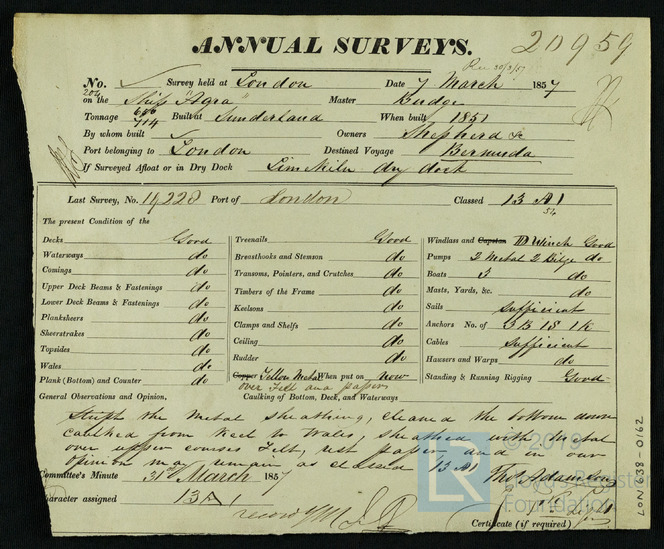 ANNUAL SURVEYS.
20959
Rec 30/3/57
No. Survey held at London Date 7 March 1857
204 on the Ship "Agra" Master Budge
Tonnage 714 Built at Sunderland When built 1851
By whom built Owners Shepherd & Co
Port belonging to London Destined Voyage Bermuda
If Surveyed Afloat or in Dry Dock Limekiln dry dock
Last Survey, No. 19,228 Port of London Classed 13 A 1
54
The present Condition of the
Decks Good Treenails Good Windlass and Capstan Winch Good
Waterways do Breasthooks and Stemson do Pumps 2 Metal 2 Bilge do
Comings do Transoms, Pointers, and Crutches do Boats 3 do
Upper Deck Beams & Fastenings do Timbers of the Frame do Masts, Yards, &c. do
Lower Deck Beams & Fastenings do Keelsons do Sails sufficient
Planksheers do Clamps and Shelfs do Anchors No. of 3 B 1 S 1 K
Sheerstrakes do Ceiling do Cables sufficient
Topsides do Rudder do Hausers and Warps do
Wales do Copper Yellow Metal When put on now Standing & Running Rigging Good
over Felt and papers
Plank (Bottom) and Counter do Caulking of Bottom, Deck, and Waterways
General Observations and Opinion,
Stript the metal sheathing, cleaned the bottom down
caulked from Keel to Wales, sheathed with metal
over upper courses Felt, rest paper, and in our
opinion may remain as classed 13 A1
Committee's Minute 31st March 1857 Thos Adamson
Character assigned 13 A 1
Certificate (if required)
LON 638-0162
LR
© 2019
Lloyd's Register
Foundation